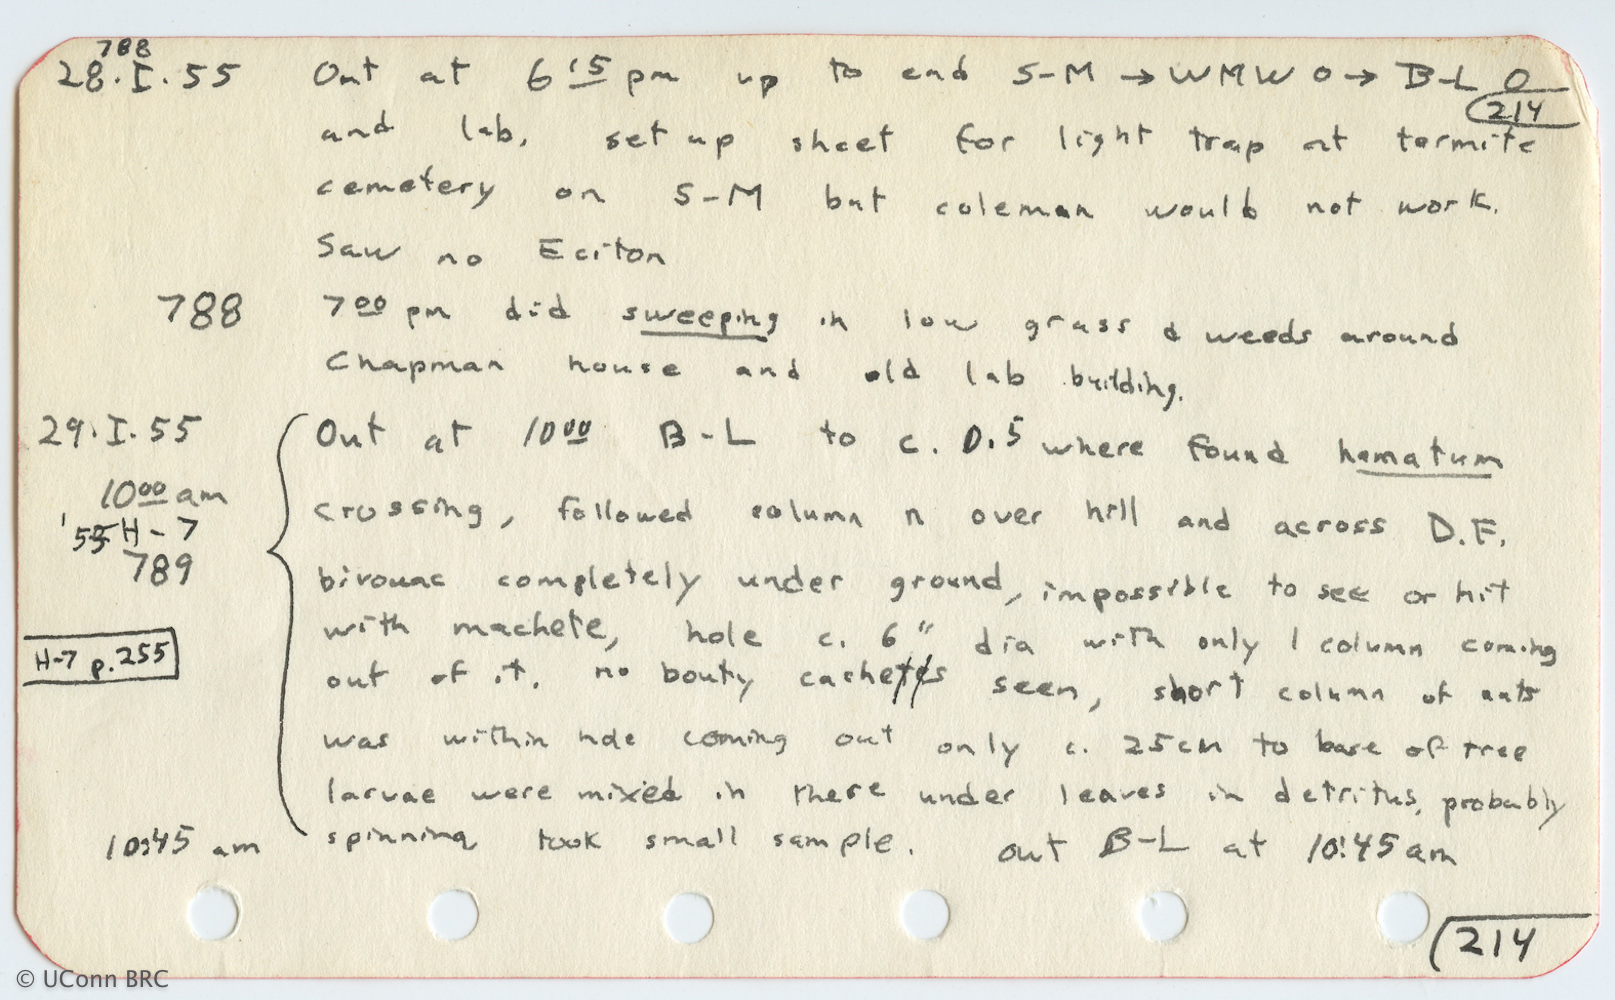 788
28.I.55 Out at 6:15 pm up to end S-M → WMW 0 → B-L 0
214
and lab. set up sheet for light trap at termite
cemetery on S-M but coleman would not work.
Saw no Eciton
788 7 00 pm did sweeping in low grass & weeds around
Chapman house and old lab building.
29.I.55 Out at 10 00 B-L to c. 0.5 where found hamatum
10 00 am crossing, followed column n over hill and across D.F.
'55 H-7
789 bivouac completely under ground, impossible to see or hit
with machete, hole c. 6" dia with only 1 column coming
H-7 p.255
out of it. no bouty caches seen, short column of ants
was within hole coming out only c. 25cm to base of tree
larvae were mixed in there under leaves in detritus, probably
10:45 am spinning took small sample. out B-L at 10:45 am
214
© UConn BRC